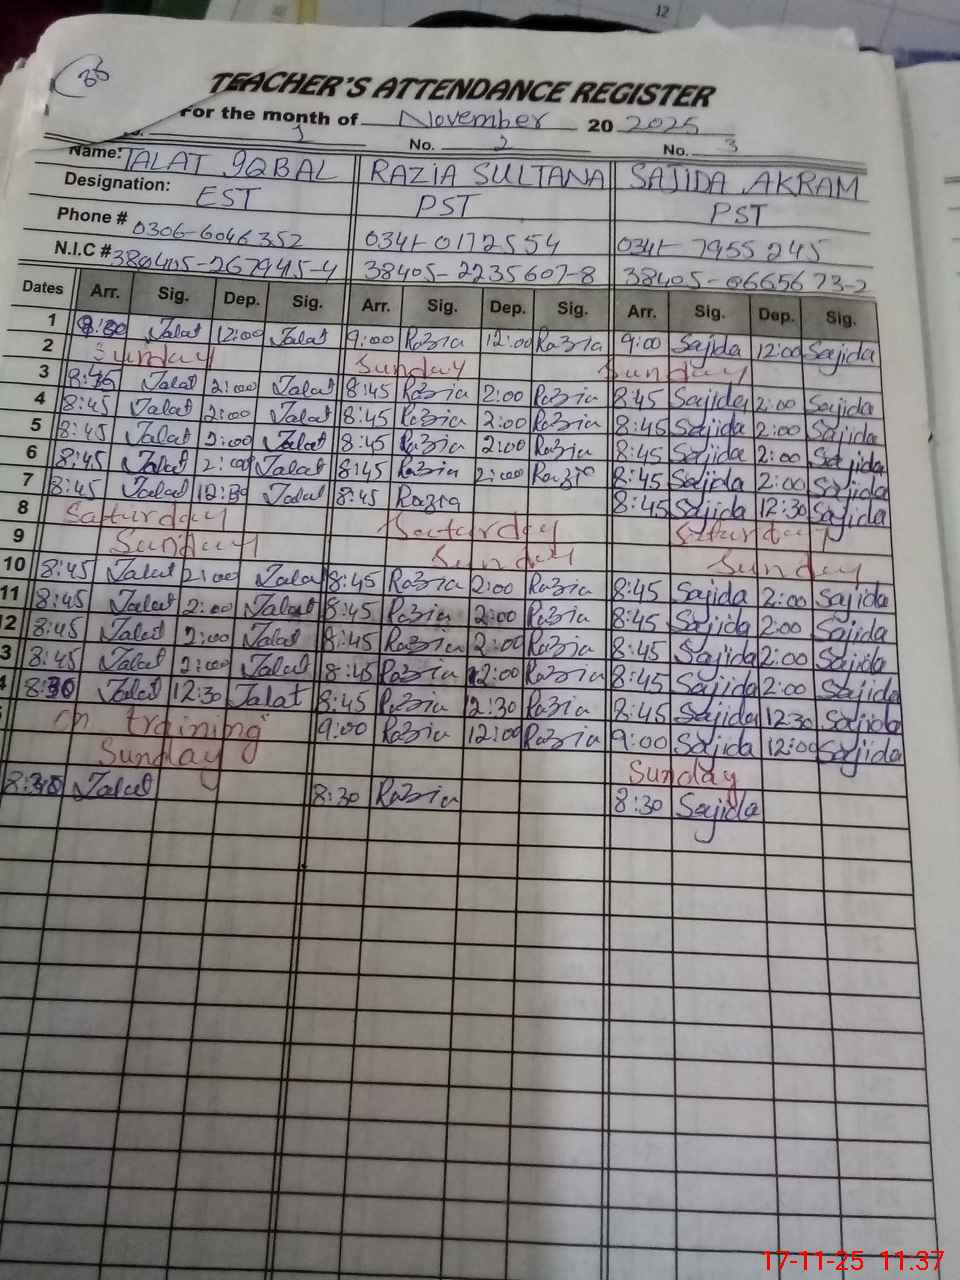 33
TEACHER'S ATTENDANCE REGISTER
For the month of November 20 2025
1 No. 2 No. 3
Name: TALAT IQBAL RAZIA SULTANA SAJIDA AKRAM
Designation: EST PST PST
Phone # 0306-6046352 0341-0172554 0341-7955245
N.I.C # 38405-2235607-8
Dates Arr. Sig. Dep. Sig. Arr. Sig. Dep. Sig. Arr. Sig. Dep. Sig.
1 Talat 12:00 Talat 9:00 Razia 12:00 Razia 9:00 Sajida 12:00 Sajida
2 Sunday Sunday Sunday
3 8:45 Talat 2:00 Talat 8:45 Razia 2:00 Razia 8:45 Sajida 2:00 Sajida
4 8:45 Talat 2:00 Talat 8:45 Razia 2:00 Razia 8:45 Sajida 2:00 Sajida
5 8:45 Talat 2:00 Talat 8:45 Razia 2:00 Razia 8:45 Sajida 2:00 Sajida
6 8:45 Talat 2:00 Talat 8:45 Razia 2:00 Razia 8:45 Sajida 2:00 Sajida
7 8:45 Talat 12:30 Talat 8:45 Razia 8:45 Sajida 12:30 Sajida
8 Saturday Saturday Saturday
9 Sunday Sunday Sunday
10 8:45 Talat 2:00 Talat 8:45 Razia 2:00 Razia 8:45 Sajida 2:00 Sajida
11 8:45 Talat 2:00 Talat 8:45 Razia 2:00 Razia 8:45 Sajida 2:00 Sajida
12 8:45 Talat 2:00 Talat 8:45 Razia 2:00 Razia 8:45 Sajida 2:00 Sajida
3 8:45 Talat 2:00 Talat 8:45 Razia 2:00 Razia 8:45 Sajida 2:00 Sajida
4 8:30 Talat 12:30 Talat 8:45 Razia 12:30 Razia 8:45 Sajida 12:30 Sajida
on training 9:00 Razia 12:00 Razia 9:00 Sajida 12:00 Sajida
Sunday Sunday
8:30 Talat 8:30 Razia 8:30 Sajida
17-11-25 11.37